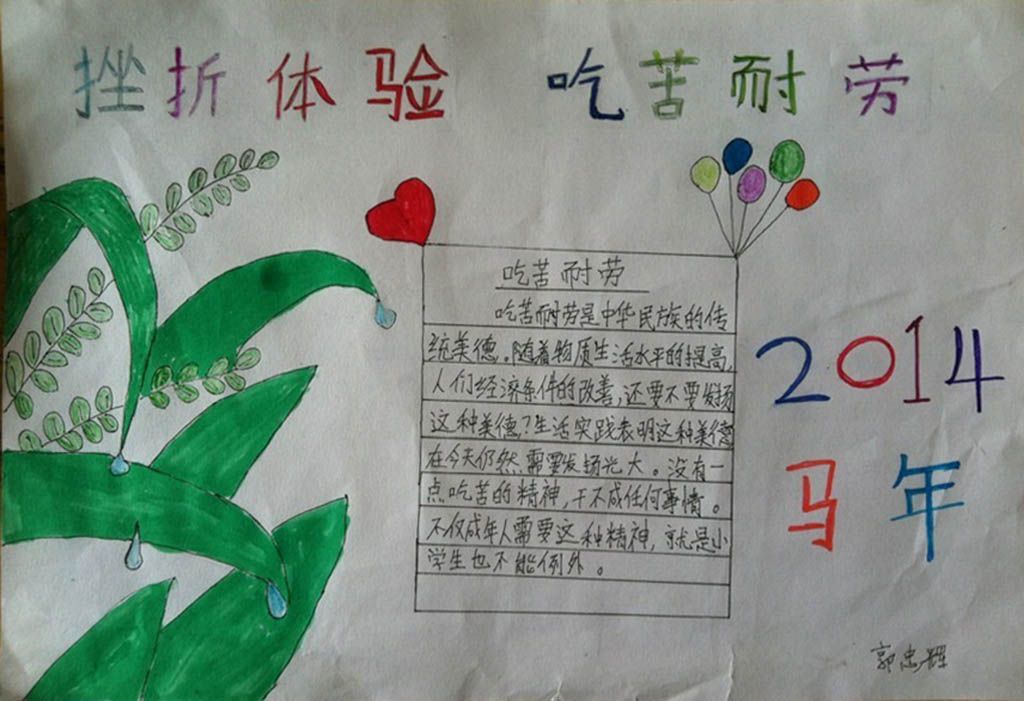 挫折体验 吃苦耐劳
吃苦耐劳
吃苦耐劳是中华民族的传
统美德。随着物质生活水平的提高,
人们经济条件的改善,还要不要发扬
这种美德?生活实践表明这种美德
在今天仍然需要发扬光大。没有一
点吃苦的精神,干不成任何事情。
不仅成年人需要这种精神,就是小
学生也不能例外。
2014
马年
郭忠辉